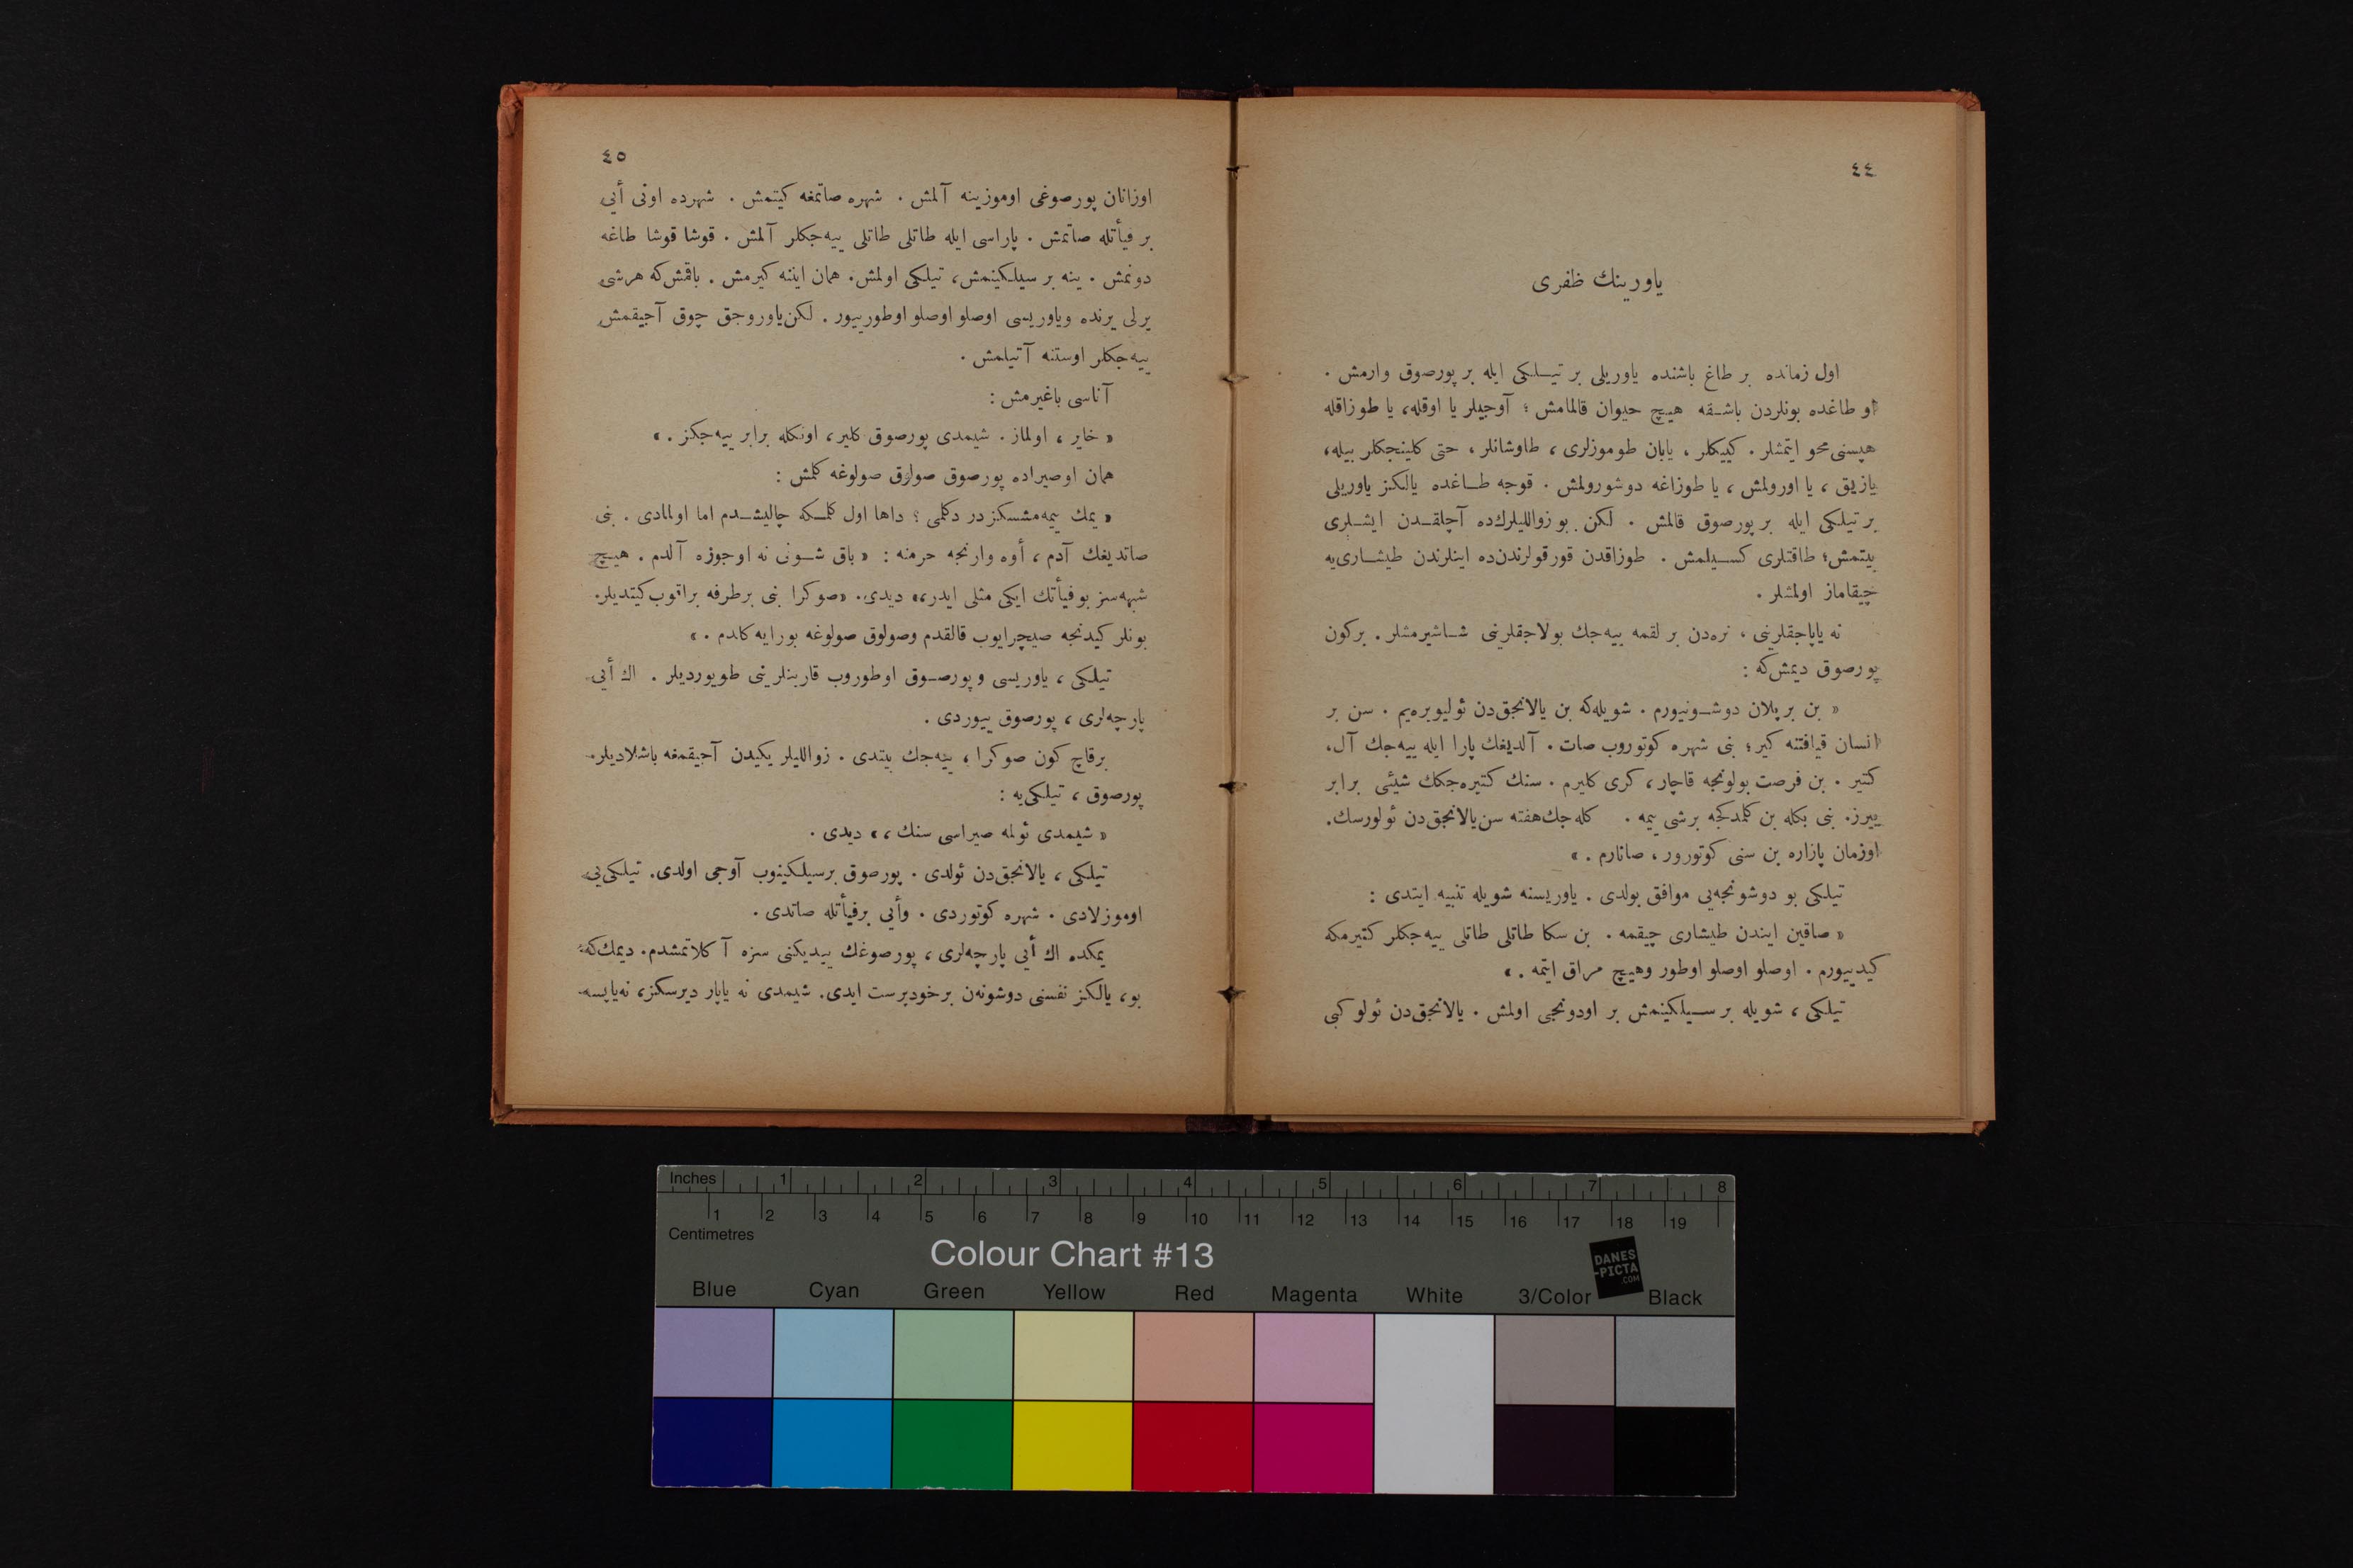 ٤٤
ياورينك ظفرى
اول زمانده بر طاغ باشنده ياوريلى بر تيلكى ايله بر پورصوق وارمش .
او طاغده بونلردن باشقه هيچ حيوان قالمامش ؛ آوجيلر يا اوقله، يا طوزاقله
هپسنى محو ايتمشلر . كييكلر ، يابان طوموزلرى ، طاوشانلر ، حتى كلينجكلر بيله،
يازيق ، يا اورولمش ، يا طوزاغه دوشورولمش . قوجه طاغده يالكز ياوريلى
بر تيلكى ايله بر پورصوق قالمش . لكن بو زوالليلرك‌ده آچلقدن ايشلرى
بيتمش؛ طاقتلرى كسيلمش . طوزاقدن قورقولرندن‌ده اينلرندن طيشارى‌يه
چيقاماز اولمشلر .
نه ياپاجقلرينى ، نره‌دن بر لقمه ييه‌جك بولاجقلرينى شاشيرمشلر . بركون
پورصوق ديمش‌كه :
« بن بر پلان دوشونيورم . شويله‌كه بن يالانجق‌دن ئوليويره‌يم . سن بر
انسان قيافتنه كير؛ بنى شهره كوتوروب صات . آلديغك پارا ايله ييه‌جك آل،
كتير . بن فرصت بولونجه قاچار، كرى كليرم . سنك كتيره‌جكك شيئى برابر
ييرز. بنى بكله بن كلمدكجه برشى ييمه . كله‌جك‌هفته سن‌يالانجق‌دن ئولورسك.
اوزمان پازاره بن سنى كوتورور ، صاتارم . »
تيلكى بو دوشونجه‌يى موافق بولدى . ياوريسنه شويله تنبيه ايتدى :
« صاقين ايندن طيشارى چيقمه . بن سكا طاتلى طاتلى ييه‌جكلر كتيرمكه
كيدييورم . اوصلو اوصلو اوطور وهيچ مراق ايتمه . »
تيلكى ، شويله بر سيلكينمش بر اودونجى اولمش . يالانجق‌دن ئولو كبى
٤٥
اوزانان پورصوغى اوموزينه آلمش . شهره صاتمغه كيتمش . شهرده اونى أيى
بر فيأتله صاتمش . پاراسى ايله طاتلى طاتلى ييه‌جكلر آلمش . قوشا قوشا طاغه
دونمش . ينه بر سيلكينمش، تيلكى اولمش. همان ايننه كيرمش . باقمش‌كه هرشى
يرلى يرنده وياوريسى اوصلو اوصلو اوطورييور . لكن‌ياوروجق چوق آجيقمش
ييه‌جكلر اوستنه آتيلمش .
آناسى باغيرمش :
« خاير ، اولماز . شيمدى پورصوق كلير، اونكله برابر ييه‌جكز . »
همان اوصيراده پورصوق صولوق صولوغه كلمش :
« يمك ييمه‌مشسكزدر دكلمى ؛ داها اول كلمكه چاليشدم اما اولمادى . بنى
صاتديغك آدم ، أوه وارنجه حرمنه : « باق شونى نه اوجوزه آلدم . هيچ
شبهه‌سز بوفيأتك ايكى مثلى ايدر،» ديدى. «صوكرا بنى برطرفه براقوب‌كيتديلر.
بونلر كيدنجه صيچرايوب قالقدم وصولوق صولوغه بورايه كلدم . »
تيلكى ، ياوريسى وپورصوق اوطوروب قارينلرينى طويورديلر . اك أيى
پارچه‌لرى ، پورصوق ييوردى .
برقاچ كون صوكرا ، ييه‌جك بيتدى . زوالليلر يكيدن آجيقمغه باشلاديلر.
پورصوق ، تيلكى‌يه :
« شيمدى ئولمه صيراسى سنك ،» ديدى .
تيلكى ، يالانجق‌دن ئولدى . پورصوق برسيلكينوب آوجى اولدى. تيلكى‌يى
اوموزلادى . شهره كوتوردى . وأيى برفيأتله صاتدى .
يمكده اك أيى پارچه‌لرى ، پورصوغك ييديكنى سزه آ كلاتمشدم. ديمك‌كه
بو، يالكز نفسنى دوشونه‌ن برخودپرست ايدى. شيمدى نه ياپار ديرسكز، نه‌ياپسه
Inches 1 2 3 4 5 6 7 8
1 2 3 4 5 6 7 8 9 10 11 12 13 14 15 16 17 18 19
Centimetres
Colour Chart #13
DANES
-PICTA
.COM
Blue Cyan Green Yellow Red Magenta White 3/Color Black